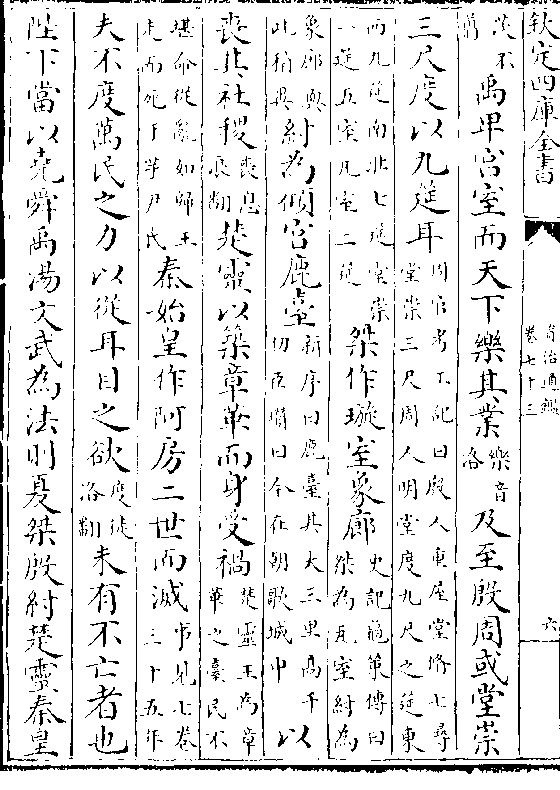 欽定四庫全書
資治通鑑
卷七十三
六
茨不翦禹卑宮室而天下樂其業樂音洛及至殷周或堂崇
三尺度以九筵耳周官考工記曰殷人重屋堂脩七尋堂崇三尺周人明堂度九尺之筵東
西九筵南北七筵堂崇一筵五室凡室二筵桀作璇室象廊史記龜策傳曰桀為瓦室紂為
象廊與此稍異紂為傾宮鹿臺新序曰鹿臺其大三里高千仞臣瓚曰今在朝歌城中以
喪其社稷喪息浪翻楚靈以築章華而身受禍楚靈王為章華之臺民不
堪命從亂如歸王走而死于芋尹氏秦始皇作阿房二世而滅事見七卷三十五年
夫不度萬民之力以從耳目之欲度徒洛翻未有不亡者也
陛下當以堯舜禹湯文武為法則夏桀殷紂楚靈秦皇